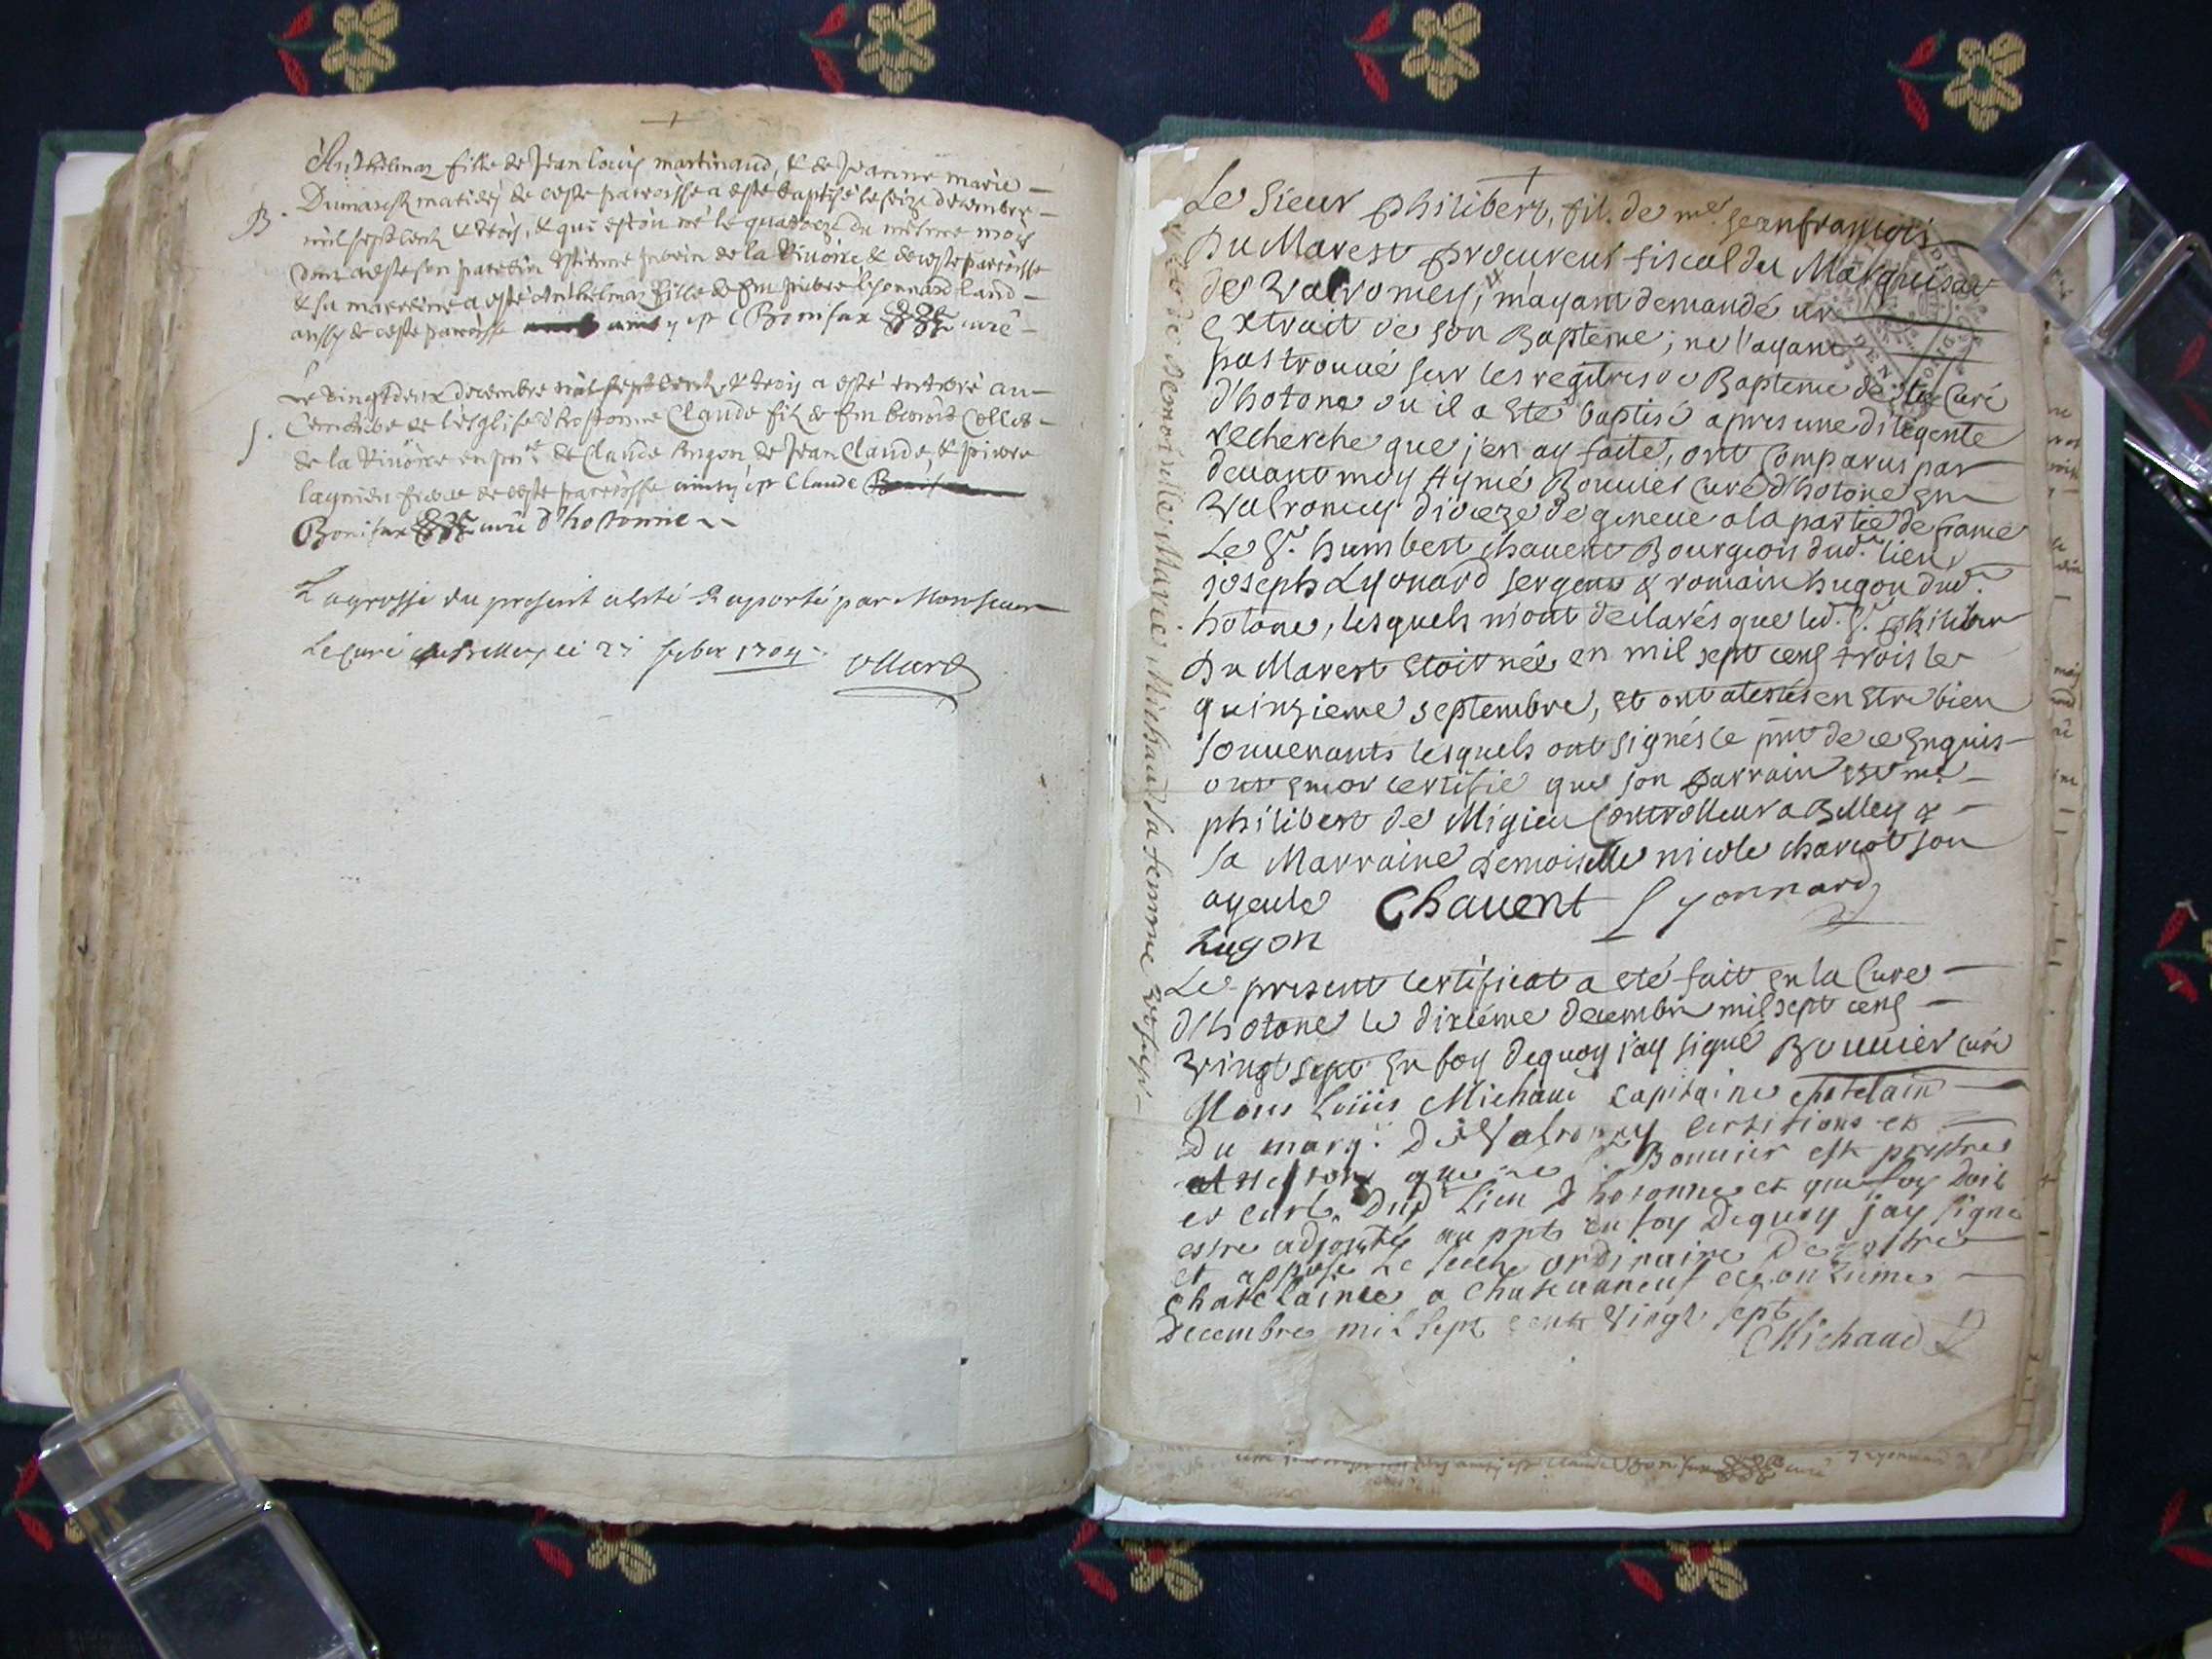 Anthelmaz fille de Jean Louis martinaud, & de Jeanne marie
Dumarest mariés de ceste parroisse a esté baptisé le seize decembre
B.
mil sept cent & trois, & qui estoit né le quatorze du mesme mois
dont a esté son parrein de la Rivoire & de ceste parroisse
& sa marreine a esté Anthelmaz fille de feu pierre lyonnard
aussy de ceste parroisse ainsy est C Bonifax curé
Le vingtdeux decembre mil sept cent & trois a esté enterré au
S.
Cemetiere de l'esglise d'hostonne Claude filz de feu benoit Collet
de la Rivoire en pnce de Claude hugon de Jean Claude, & pierre
de ceste parroisse ainsy est Claude
Bonifax curé d'hostonne
La grosse du present a esté Raporté par Monsieur
Le Curé 1704
Ollard
Le Sieur philibert, fil. de me. Jeanfrançois
Du Marest procureur fiscal du Marquisat
de Valromey, m'ayant demandé un
Extrait de son Bapteme; ne l'ayant
pas trouué sur les regitres de Bapteme de la Cure
d'hotone ou il a eté baptisé apres une diligente
recherche que j'en ay faite, ont comparus par
deuant moy Aymé Bouuier Curé d'hotone en
Valromey dioceze de geneue a la partie de france
Le Sr. humbert chauent Bourgeois dud. lieu
joseph Lyonard sergent & romain hugon dud.
hotone, lesquels m'ont declarés que led. Sr. philibert
Du Marest etoit né en mil sept cens trois le
quinzieme septembre, et ont atestés en etre bien
souuenants lesquels ont signés le pnt de ce enquis
certifié que son parrain est me
philibert de Migieu Controlleur a Belley &
sa Marraine Demoiselle nicole charcot son
ayeule Chauent Lyonnard
hugon
Le present certificat a eté fait en la Cure
d'hotone le dixiéme decembre mil sept cens
vingt sept en foy dequoy j'ay signé Bouuier curé
Nous Loüis Michaud Capitaine chatelain
Du marq. De Valromey certifions et
attestons que Bouuier est prestre
et curé Dud. Lieu d'hotonne et que foy doit
estre adjoutée au pnt en foy Dequoy jay signé
et apposé Le sceau ordinaire De nostre
chatelainie a Chateauneuf ce onzieme
Decembre mil sept cent vingt sept
Michaud
& de Demoiselle Marie Michaud sa femme